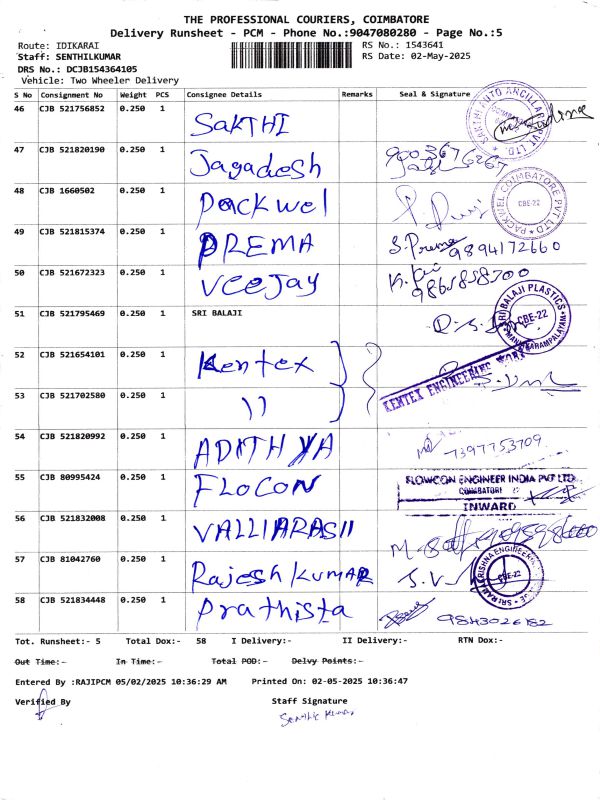 THE PROFESSIONAL COURIERS, COIMBATORE
Delivery Runsheet - PCM - Phone No.:9047080280 - Page No.:5
Route: IDIKARAI RS No.: 1543641
Staff: SENTHILKUMAR RS Date: 02-May-2025
DRS No.: DCJB154364105
Vehicle: Two Wheeler Delivery
S No Consignment No Weight PCS Consignee Details Remarks Seal & Signature
46 CJB 521756852 0.250 1 SAKTHI SAKTHI AUTO ANCILLARY PVT LTD.
47 CJB 521820190 0.250 1 Jagadesh 9003676267
48 CJB 1660502 0.250 1 Packwel PACKWEL COIMBATORE PVT LTD CBE-22
49 CJB 521815374 0.250 1 PREMA S. Prema 9894172660
50 CJB 521672323 0.250 1 Veejay 9865858700
51 CJB 521795469 0.250 1 SRI BALAJI SRI BALAJI PLASTICS CBE-22
52 CJB 521654101 0.250 1 Kentex KENTEX ENGINEERING WORK
53 CJB 521702580 0.250 1 ))
54 CJB 521820992 0.250 1 ADITHYA 7397753709
55 CJB 80995424 0.250 1 FLOCON FLOWCON ENGINEER INDIA PVT LTD
COIMBATORE
INWARD
56 CJB 521832008 0.250 1 VALLIARASII
57 CJB 81042760 0.250 1 Rajesh KUMAR CBE-22
58 CJB 521834448 0.250 1 Prathista 9843026182
Tot. Runsheet:- 5 Total Dox:- 58 I Delivery:- II Delivery:- RTN Dox:-
Out Time:- In Time:- Total POD:- Delvy Points:-
Entered By :RAJIPCM 05/02/2025 10:36:29 AM Printed On: 02-05-2025 10:36:47
Verified By Staff Signature
Senthil Kumar